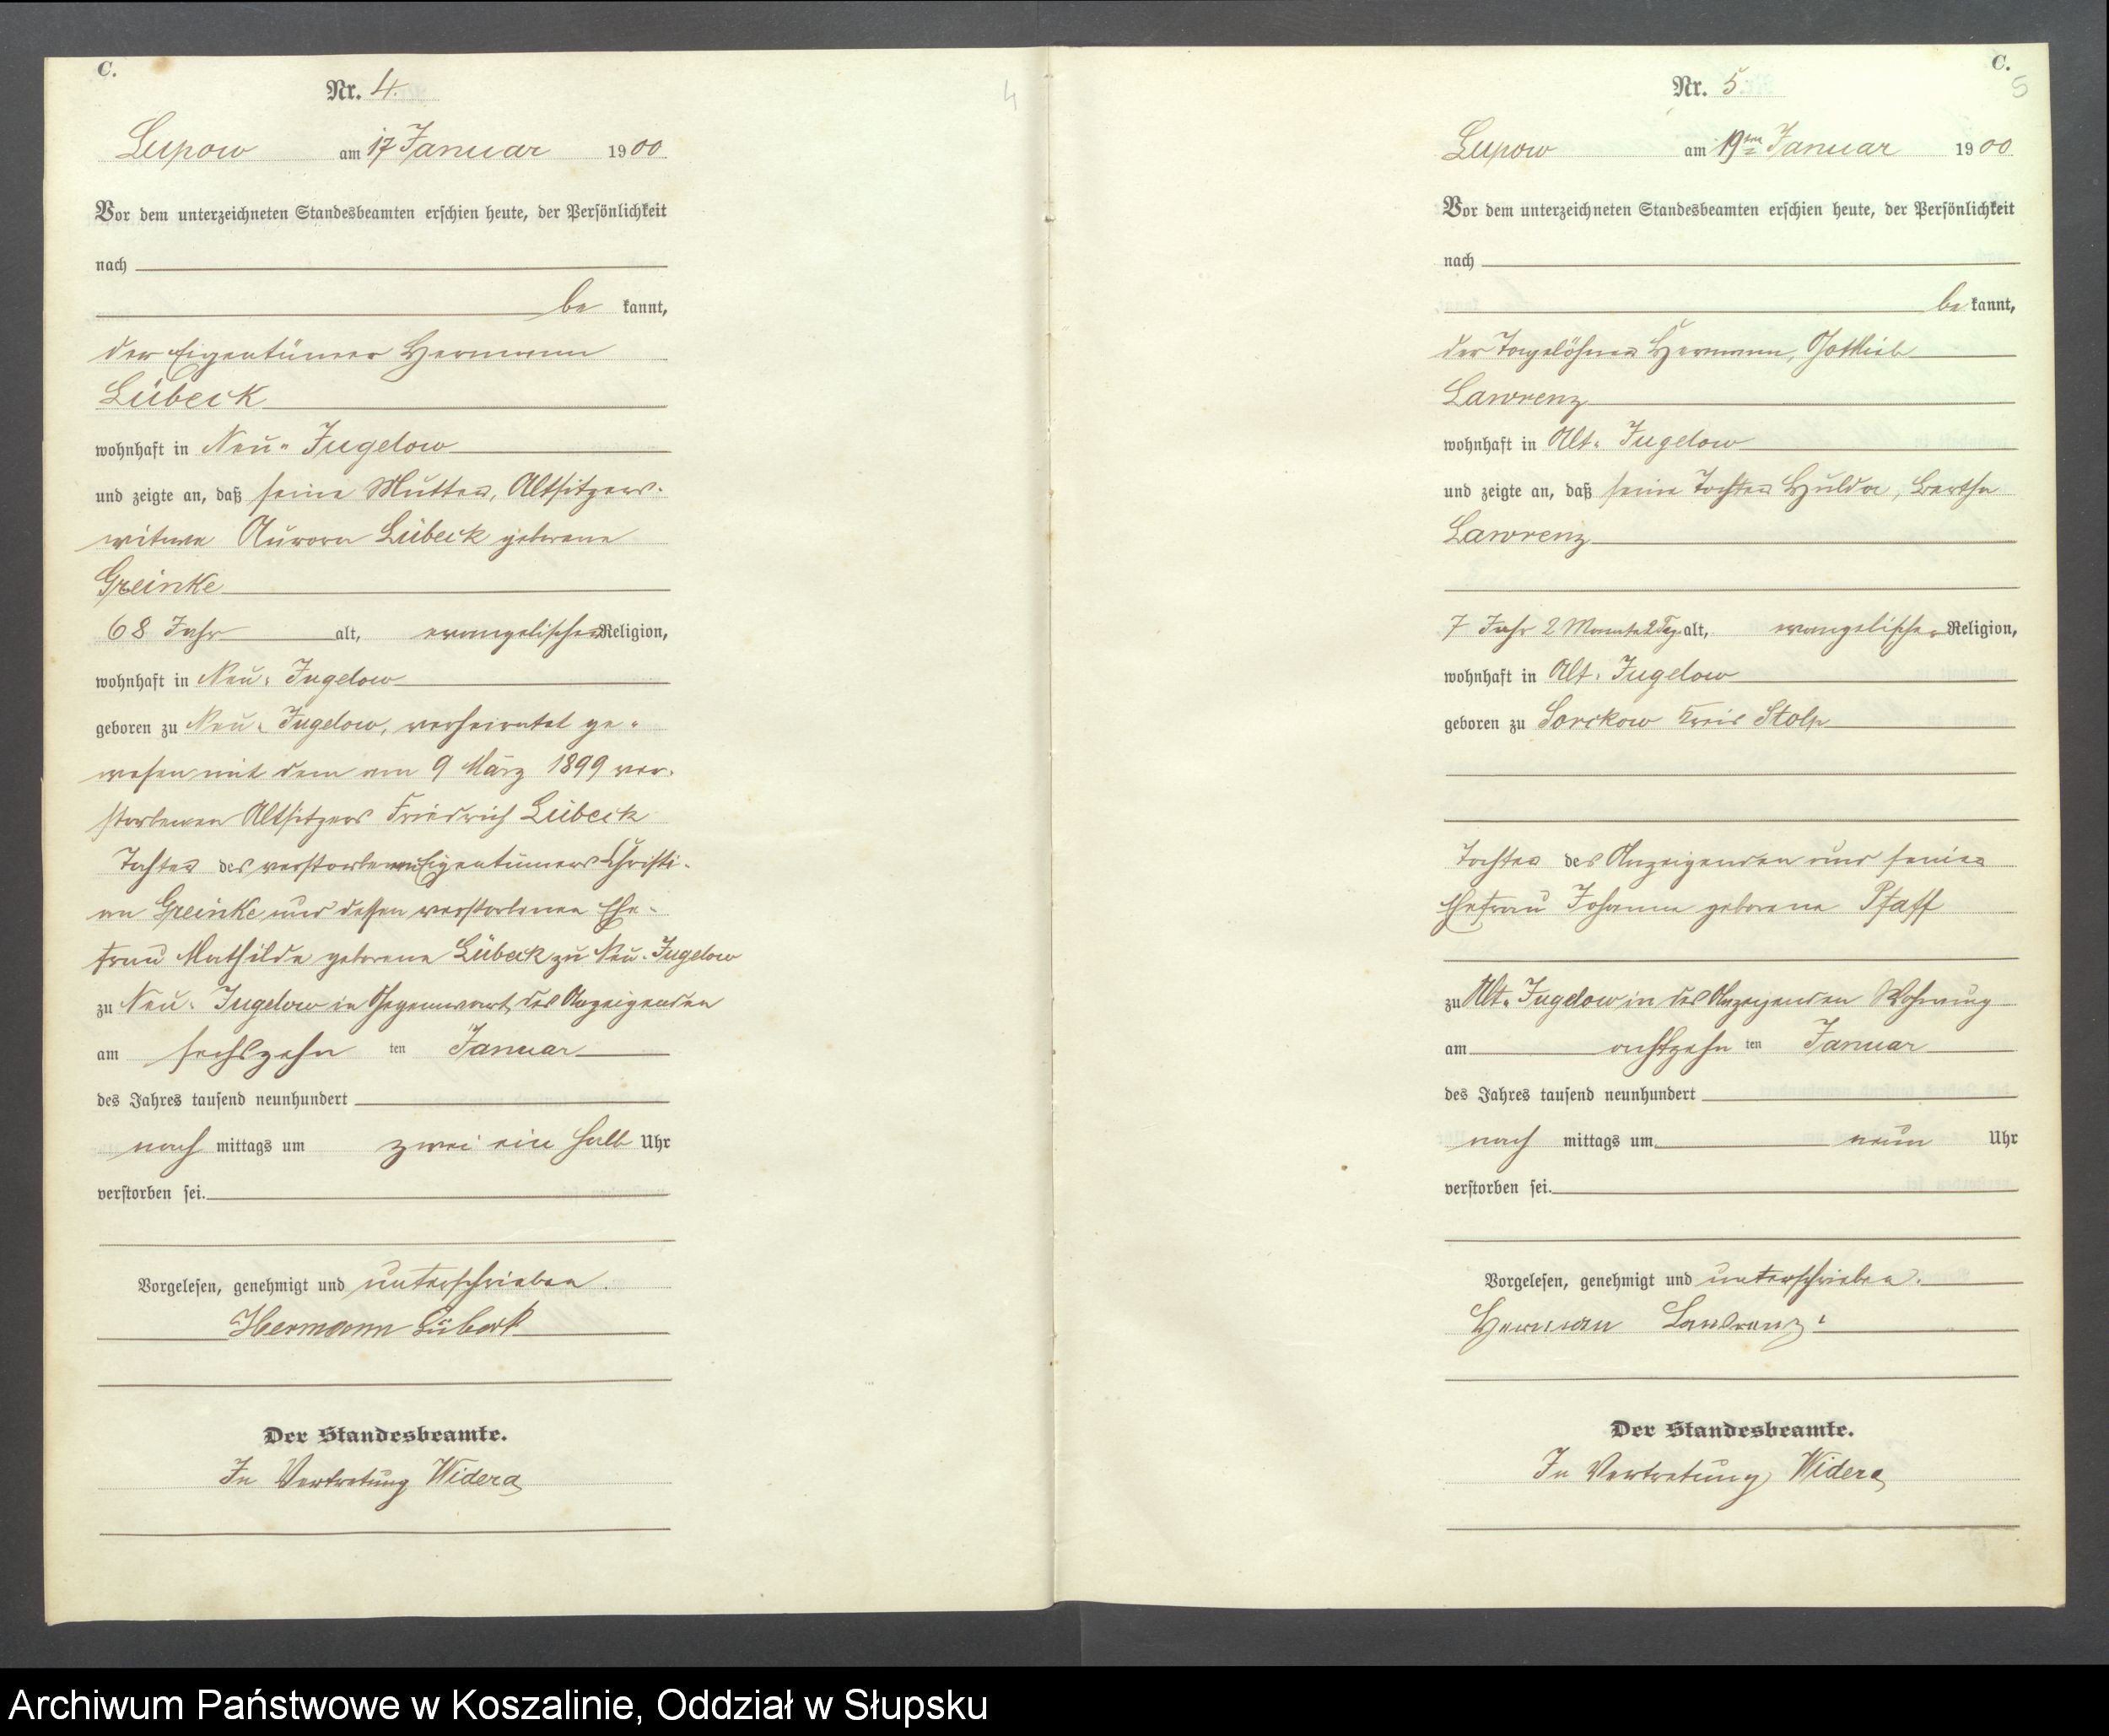 C.
Nr. 4.
Lupow am 17 Januar 1900
Vor dem unterzeichneten Standesbeamten erschien heute, der Persönlichkeit
nach
be kannt,
der Eigentümer Hermann
Lübeck
wohnhaft in Neu-Jugelow
und zeigte an, daß seine Mutter, Altsitzers-
witwe Aurora Lübeck geborene
Greinke
68 Jahr alt, evangelischer Religion,
wohnhaft in Neu-Jugelow
geboren zu Neu-Jugelow, verheiratet ge-
wesen mit dem am 9 März 1899 ver-
storbenen Altsitzers Friedrich Lübeck
Tochter des verstorbenen Eigentümers Christi-
an Greinke und dessen verstorbenen Ehe-
frau Mathilde geborene Lübeck zu Neu-Jugelow
zu Neu-Jugelow in Gegenwart des Anzeigenden
am sechszehn ten Januar
des Jahres tausend neunhundert
nach mittags um zwei ein halb Uhr
verstorben sei.
Vorgelesen, genehmigt und unterschrieben.
Hermann Lübeck
Der Standesbeamte.
In Vertretung Widera
4
C.
5
Nr. 5
Lupow am 19ten Januar 1900
Vor dem unterzeichneten Standesbeamten erschien heute, der Persönlichkeit
nach
be kannt,
der Tagelöhner Hermann, Gottlieb
Lawrenz
wohnhaft in Alt-Jugelow
und zeigte an, daß seine Tochter Hulda, Bertha
Lawrenz
7 Jahr 2 Monate 2 Tag alt, evangelischer Religion,
wohnhaft in Alt-Jugelow
geboren zu Sorckow Kreis Stolp
Tochter des Anzeigenden und seiner
Ehefrau Johanna geborene Pfaff
zu Alt-Jugelow in des Anzeigenden Wohnung
am achtzehn ten Januar
des Jahres tausend neunhundert
nach mittags um neun Uhr
verstorben sei.
Vorgelesen, genehmigt und unterschrieben.
Herman Lawrenz
Der Standesbeamte.
In Vertretung Widera
Archiwum Państwowe w Koszalinie, Oddział w Słupsku